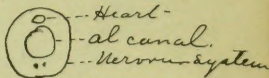 Heart
al canal.
Nervous System